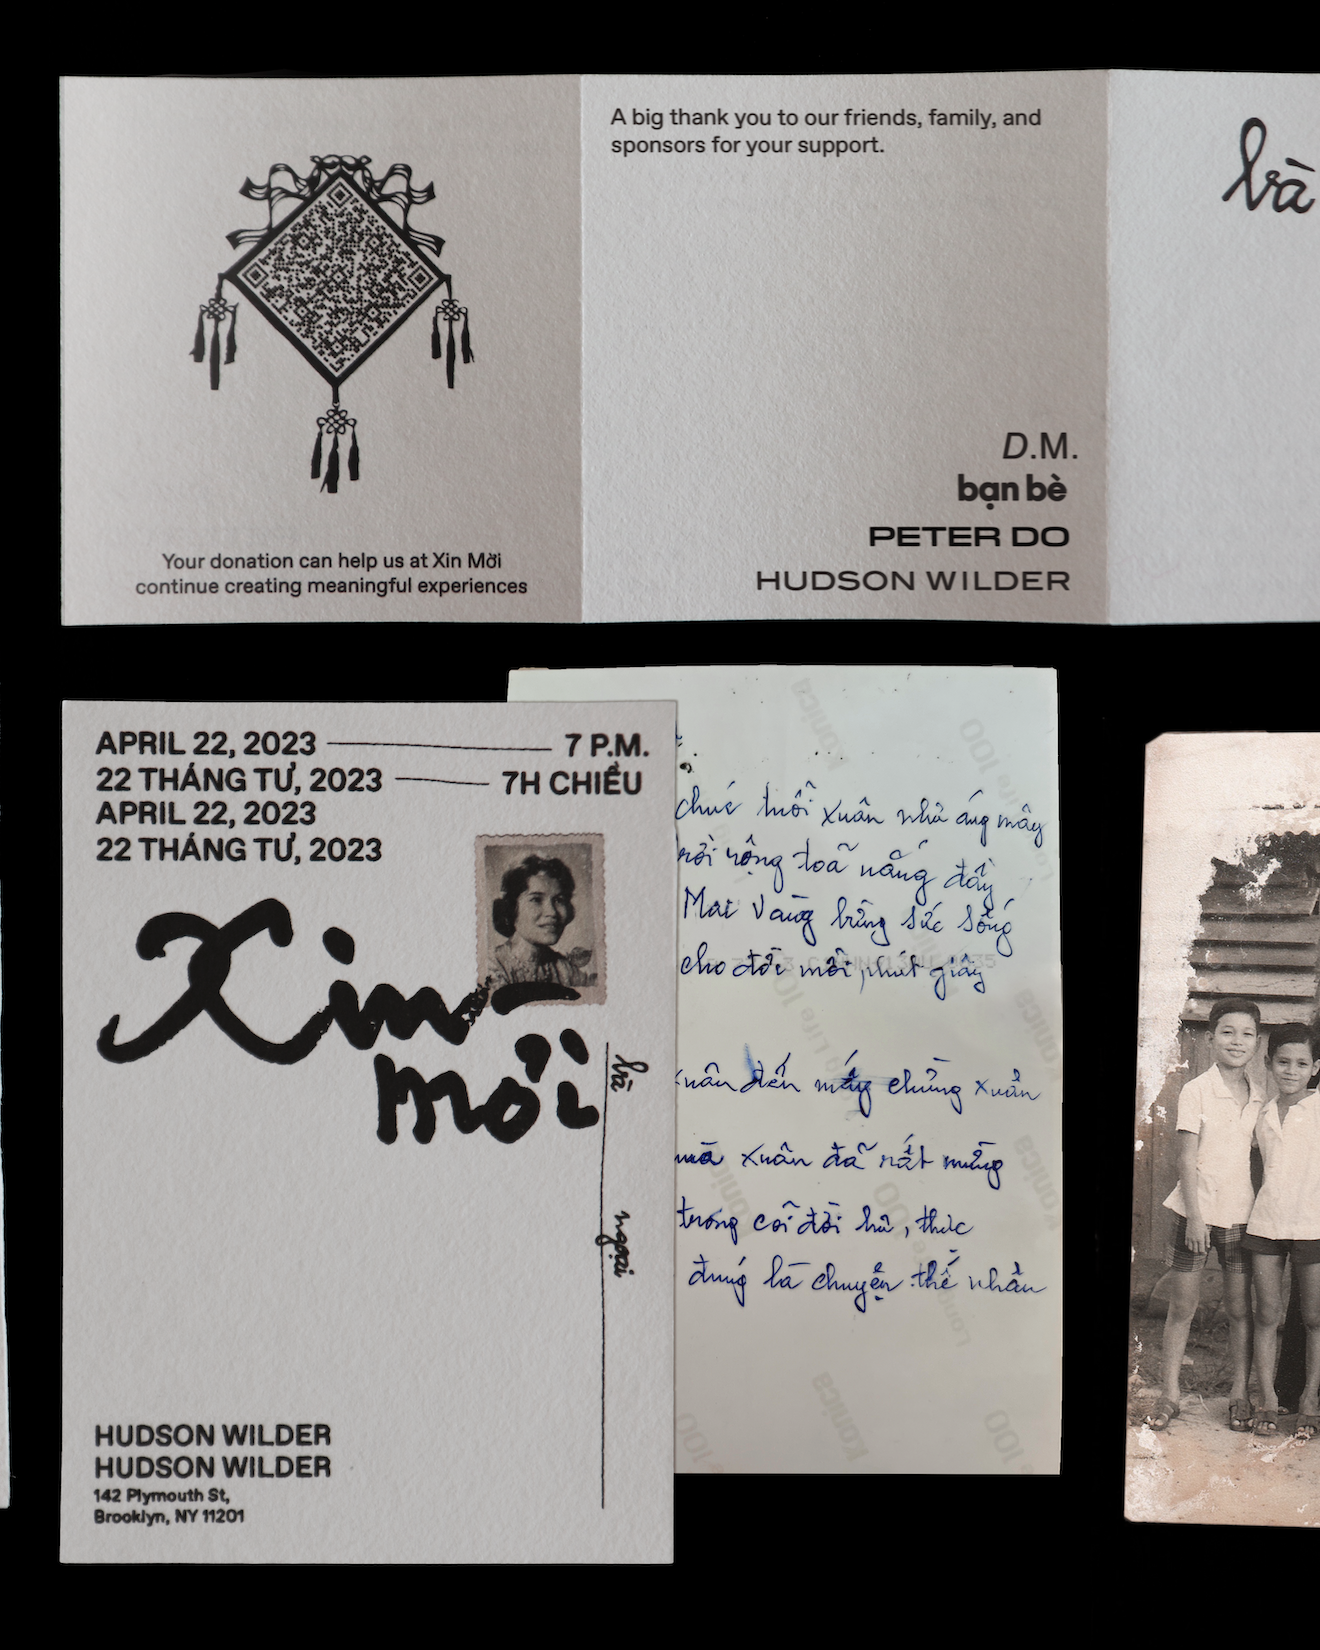 A big thank you to our friends, family, and
sponsors for your support.
bà
D.M.
bạn bè
PETER DO
HUDSON WILDER
Your donation can help us at Xin Mời
continue creating meaningful experiences
APRIL 22, 2023 7 P.M.
22 THÁNG TƯ, 2023 7H CHIỀU
APRIL 22, 2023
22 THÁNG TƯ, 2023
Xin
mời
bà
ngoại
HUDSON WILDER
HUDSON WILDER
142 Plymouth St,
Brooklyn, NY 11201
chúc tuổi xuân như áng mây
rộng toả nắng đầy
Mai Vàng bừng sức sống
cho đời mỗi phút giây
xuân đến mấy chừng xuân
mà xuân đã rất mừng
trong cõi đời hư, thực
đúng là chuyện thế nhân
Konica
100
Long Life 100
Konica
Konica
Konica
100
Konica
100